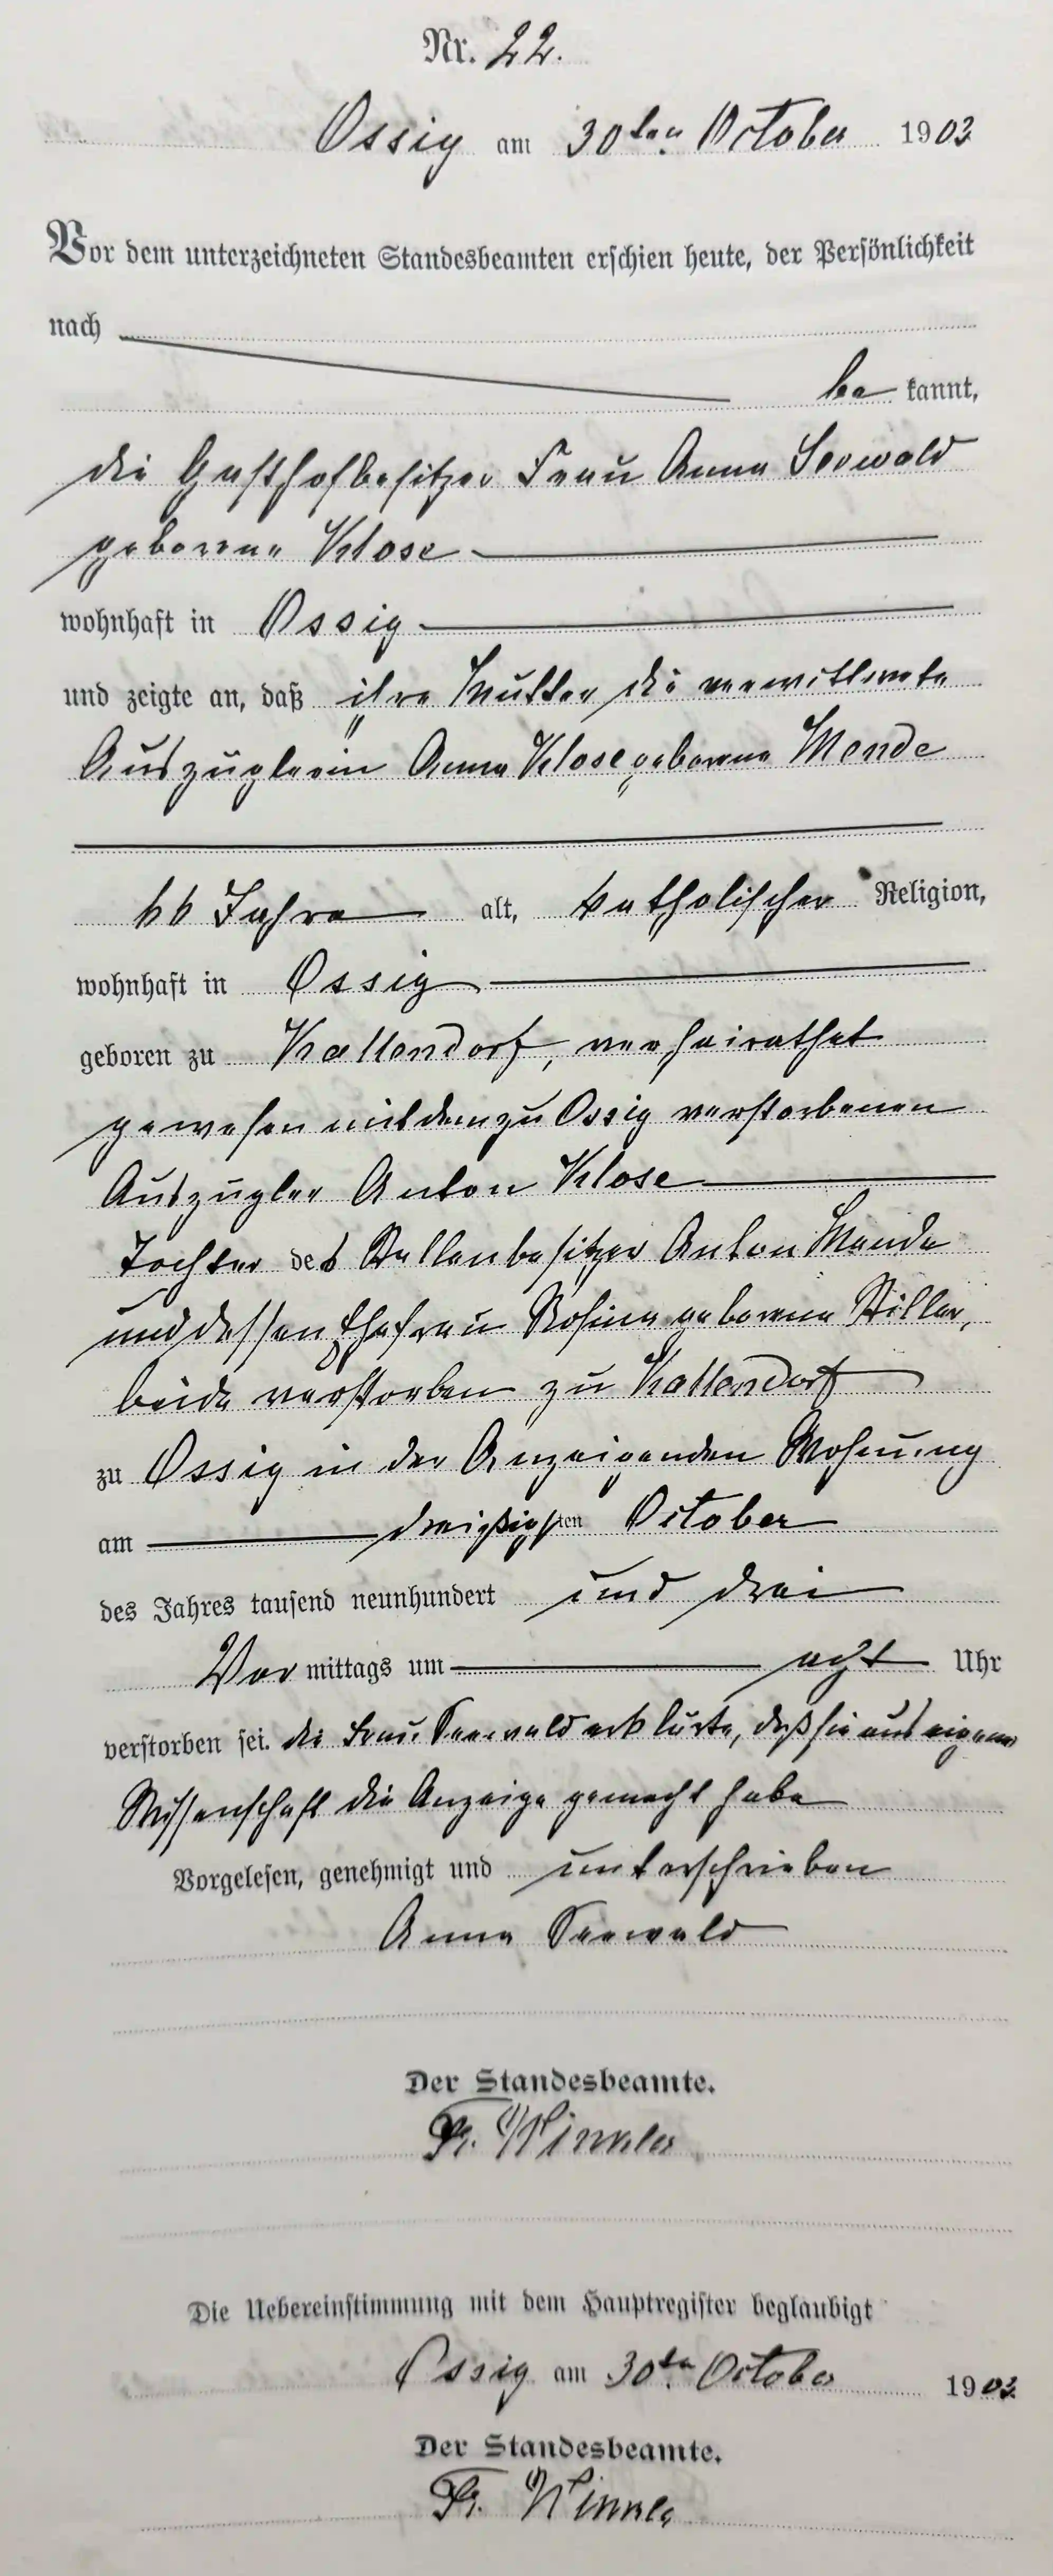 Nr. 22.
Ossig am 30ten October 1903
Vor dem unterzeichneten Standesbeamten erschien heute, der Persönlichkeit
nach
be kannt,
die Gasthofbesitzer Frau Anna Seewald
geborene Klose
wohnhaft in Ossig
und zeigte an, daß ihre Mutter die verwittwete
Auszüglerin Anna Klose geborene Mende
66 Jahre alt, katholischer Religion,
wohnhaft in Ossig
geboren zu Kallendorf, verheirathet
gewesen mit dem zu Ossig verstorbenen
Auszügler Anton Klose
Tochter des Stellenbesitzer Anton Mende
und dessen Ehefrau Rosina geborene Stiller,
beide verstorben zu Kallendorf
zu Ossig in der Anzeigenden Wohnung
am dreißigsten October
des Jahres tausend neunhundert und drei
Vor mittags um acht Uhr
verstorben sei. die Frau Seewald erklärte, daß sie aus eigener
Wissenschaft die Anzeige gemacht habe
Vorgelesen, genehmigt und unterschrieben
Anna Seewald
Der Standesbeamte.
Fr. Winkler
Die Uebereinstimmung mit dem Hauptregister beglaubigt
Ossig am 30ten October 1903
Der Standesbeamte.
Fr. Winkler